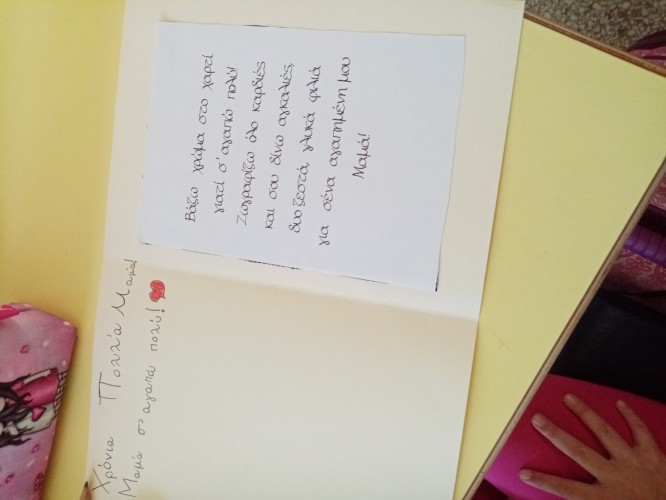 Βάζω χρώμα στο χαρτί
γιατί σ' αγαπώ πολύ!
Ζωγραφίζω όλο καρδιές
και σου δίνω αγκαλιές,
δυο ζεστά, γλυκά φιλιά
για σένα αγαπημένη μου
Μαμά!
Χρόνια Πολλά Μαμά!
Μαμά σ' αγαπώ πολύ!